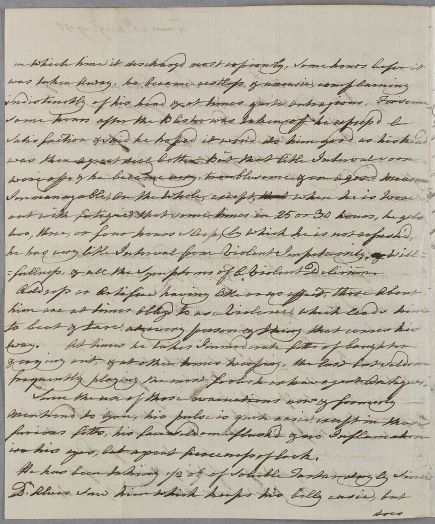 in which time it discharged most copiously, Some hours before it
was taken away, he became restless & uneasie, complaining
indistinctly of his head & at times quite outrageous. For some
some hours after the Blister was taken off he expressed
satisfaction & said he hoped it would do him good as his head
was then a great deal better But that little Interval soon
wore off, & he became very troublesome & in a great measure
Unmanageable, on the whole, except, when he is worn
out with fatigue that some times in 25 or 30 hours, he gets
two, three, or four hours Sleep, by which he is not refreshed,
he has very little Interval from Violent Impetuosity, Will-
-fullness, & all the Symptoms of a Violent Delirium
Address or Artifice having little or no effect, those about
him are at times oblig'd to use Violence, which leads him
to beat & tear every person & thing that comes his
way. At times he takes Immoderate fitts of laughter
& crying out, & at other times weeping, the last but seldom
frequently playing the most foolish
Since the use of those evacuations now & formerly
mentiond to you, his pulse is quite calm except in the
furious fitts, his face seldom flushed & no Inflamation
in his eyes, but a great fierceness of look.
He has been taking 1/2 oz of Soluble Tartar daily Since
Dr. saw him which keeps his belly easie, but
does